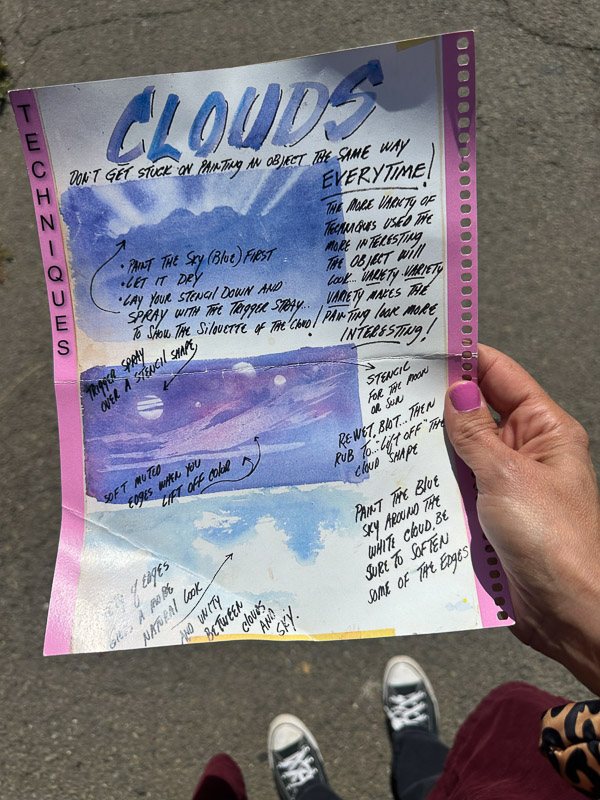 TECHNIQUES
CLOUDS
DON'T GET STUCK ON PAINTING AN OBJECT THE SAME WAY
EVERYTIME!
THE MORE VARIETY OF
TECHNIQUES USED THE
MORE INTERESTING
THE OBJECT WILL
LOOK... VARIETY VARIETY
VARIETY MAKES THE
PAINTING LOOK MORE
INTERESTING!
• PAINT THE SKY (BLUE) FIRST
• LET IT DRY
• LAY YOUR STENCIL DOWN AND
SPRAY WITH THE TRIGGER SPRAY...
TO SHOW THE SILOUETTE OF THE CLOUD!
TRIGGER SPRAY
OVER A STENCIL SHAPE
STENCIL
FOR THE MOON
OR SUN
RE-WET, BLOT... THEN
RUB TO... "LIFT OFF" THE
CLOUD SHAPE
SOFT MUTED
EDGES WHEN YOU
LIFT OFF COLOR
PAINT THE BLUE
SKY AROUND THE
WHITE CLOUD. BE
SURE TO SOFTEN
SOME OF THE EDGES
EDGES
GIVES A MORE
NATURAL LOOK
AND UNITY
BETWEEN
CLOUDS
AND
SKY.